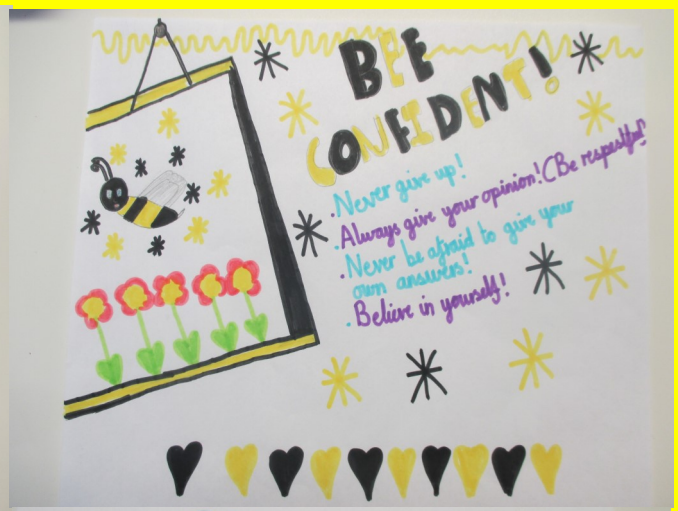 BEE
CONFIDENT!
. Never give up!
. Always give your opinion! (Be respectful!)
. Never be afraid to give your
own answers!
. Believe in yourself!